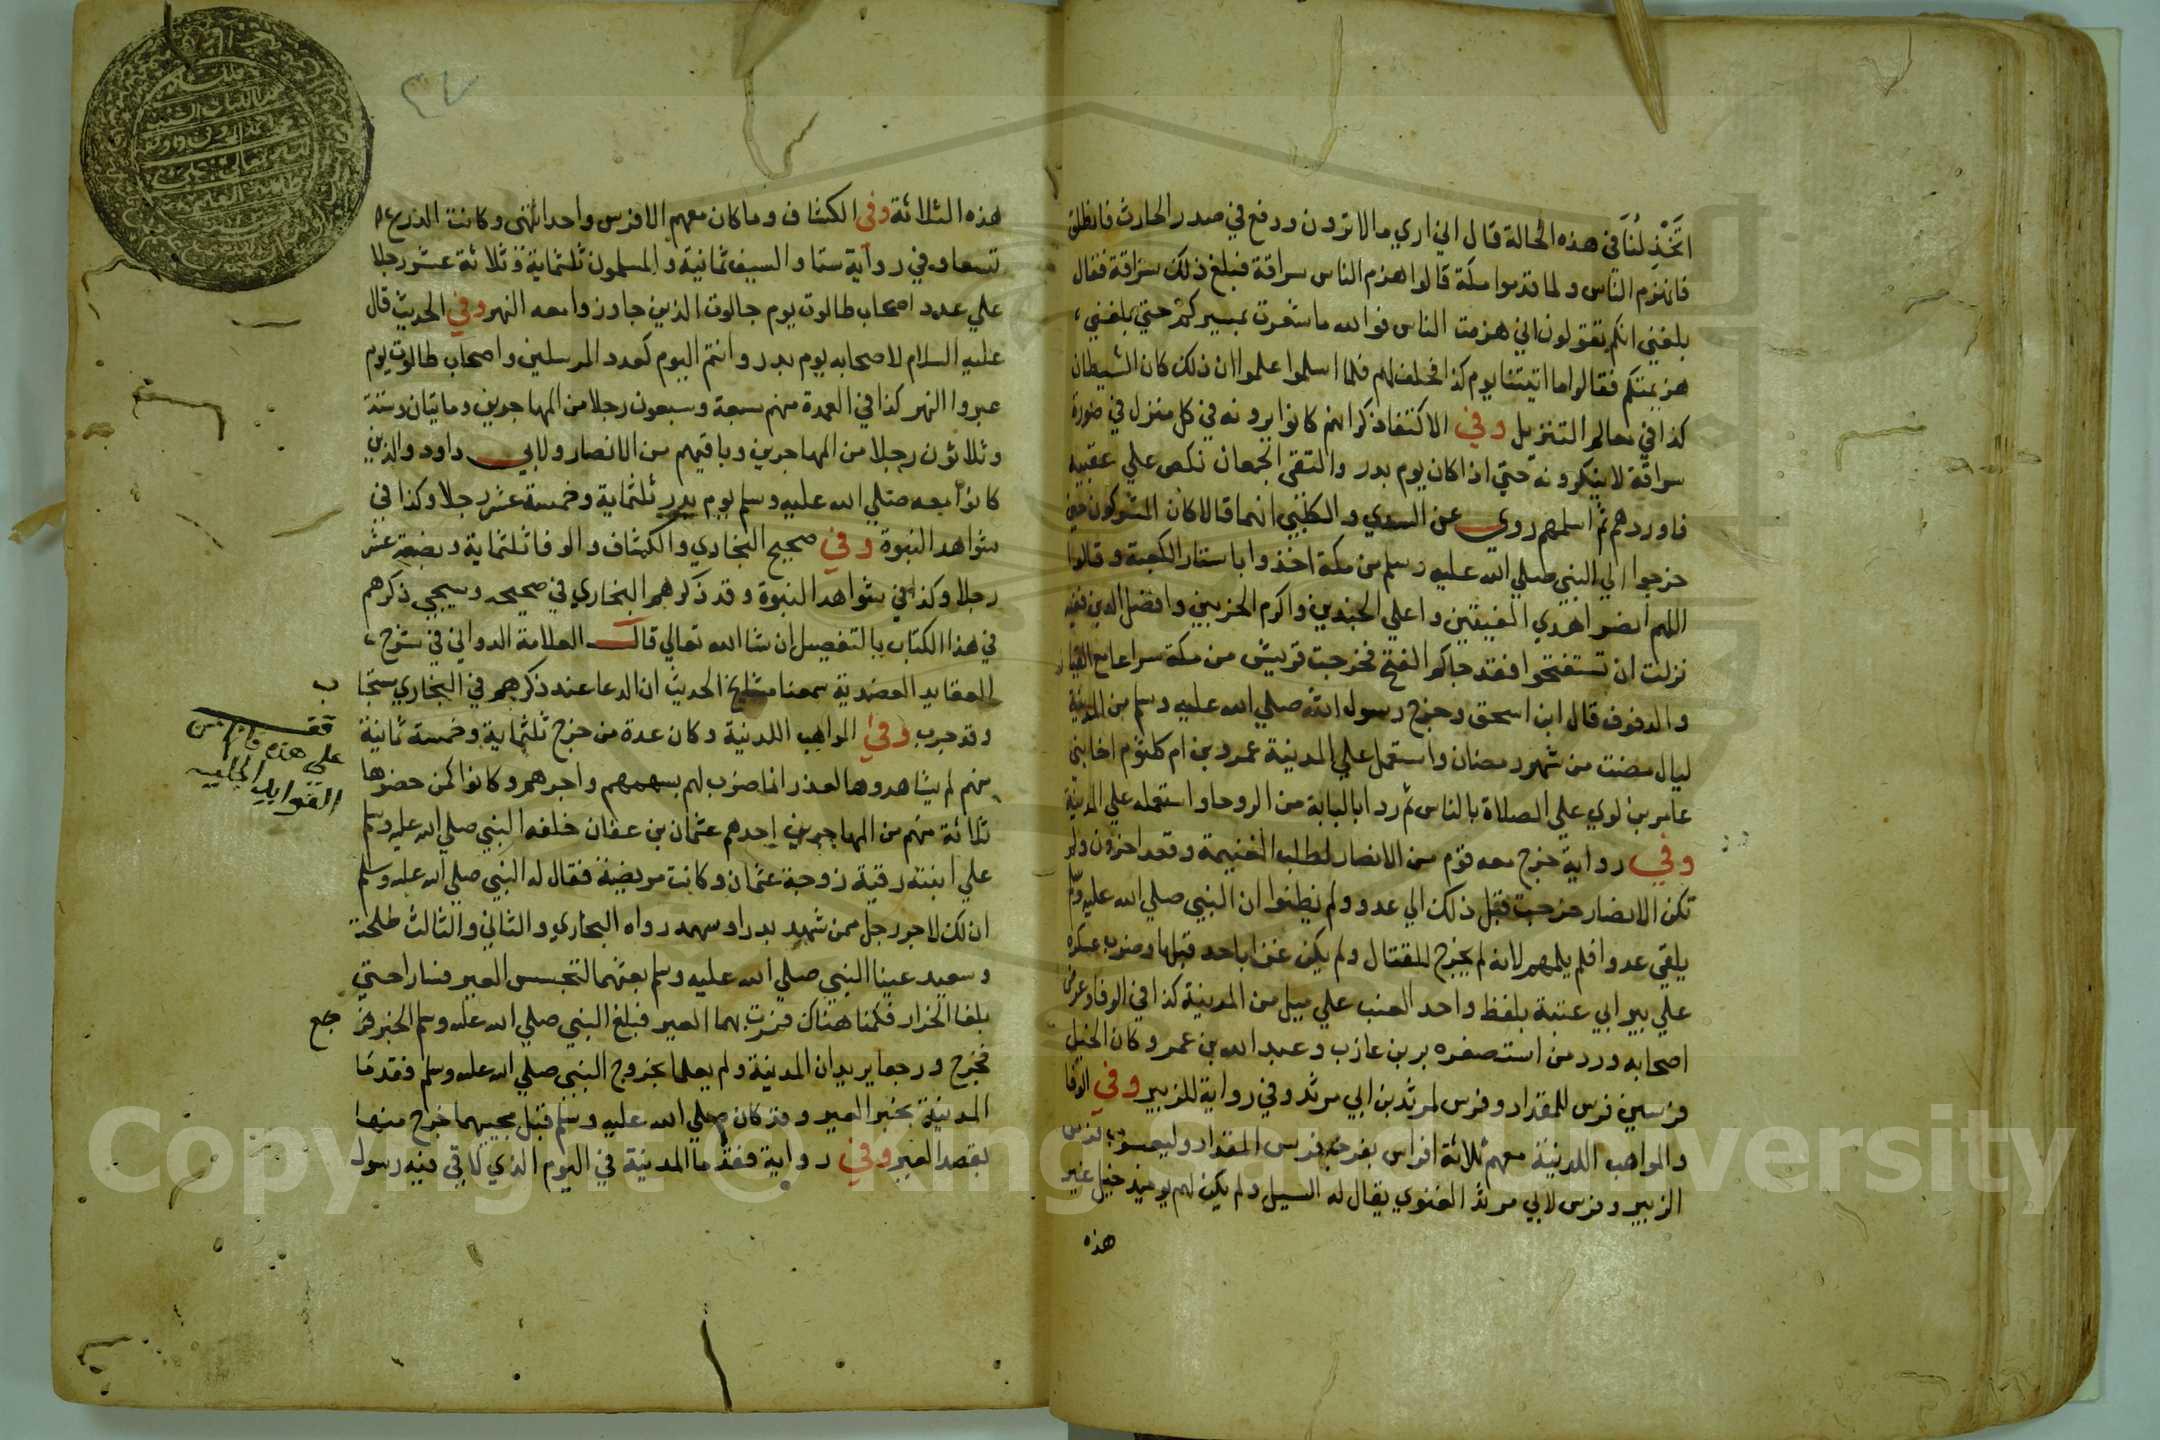 اتخذلنا في هذه الحالة قال اني اري مالا ترون ودفع في صدر الحارث فانطلق
فانهزم الناس ولما قدموا مكة قالوا هزم الناس سراقة فبلغ ذلك سراقة فقال
بلغني انكم تقولون اني هزمت الناس فوالله ما شعرت بمسيركم حتي بلغني
هزيمتكم فقالوا ما اتيتنا يوم كذا فحلف لهم فلما اسلموا علموا ان ذلك كان الشيطان
كذا في معالم التنزيل وفي الاكتفا ذكر انهم كانوا يرونه في كل منزل في صورة
سراقة لا ينكرونه حتي اذا كان يوم بدر والتقى الجمعان نكص علي عقبيه
فاوردهم ثم اسلمهم روي عن السدي والكلبي انهما قالا كان المشركون حين
خرجوا الي النبي صلي الله عليه وسلم من مكة اخذوا باستار الكعبة وقالوا
اللهم انصر اهدي الفيقين واعلي الجندين واكرم الحزبين وافضل الدينين ففيه
نزلت ان تستفتحوا فقد جاكم الفتح فخرجت قريش من مكة سراعا مع القيان
والدفوف قال ابن اسحق وخرج رسول الله صلي الله عليه وسلم من المدينة
ليال مضت من شهر رمضان واستعمل علي المدينة عمرو بن ام كلثوم اخا بني
عامر بن لوي علي الصلاة بالناس ثم رد ابا لبابة من الروحا واستعمله علي المدينة
وفي رواية خرج معه قوم من الانصار لطلب الغنيمة وقعد اخرون ولم
تكن الانصار خرجت قبل ذلك الي عدو ولم يظنوا ان النبي صلي الله عليه وسلم
يلقي عدوا فلم يلمهم لانه لم يخرج للقتال ولم يكن غزا باحد قبلها وضرب عسكره
علي بير ابي عتبة بلفظ واحد العنب علي ميل من المدينة كذا في الوفا وعرض
اصحابه ورد من استصغره بربن عازب وعبد الله بن عمر وكان الخيل
فرسين فرس للمقداد وفرس لمرثد بن ابي مرثد وفي رواية للزبير وفي الوفا
والمواهب اللدنية معهم ثلاثة افراس بفرجه فرس المقداد واليعسوب فرس
الزبير وفرس لابي مرثد الغنوي يقال له السيل ولم يكن لهم يوميذ خيل غير
هذه
٣٧
هذه الثلاثة وفي الكشاف وما كان معهم الا فرس واحد انتهى وكانت الدرع
تسعا وفي رواية ستا والسيف ثمانية والمسلمون ثلثماية وثلاثة عشر رجلا
علي عدد اصحاب طالوت يوم جالوت الذين جاوزوا معه النهر وفي الحديث قال
عليه السلام لاصحابه يوم بدر وانتم اليوم كعدد المرسلين واصحاب طالوت يوم
عبروا النهر كذا في العمدة منهم سبعة وسبعون رجلا من المهاجرين وماتيان وستة
وثلاثون رجلا من المهاجرين وباقيهم من الانصار ولابي داود والذين
كانوا معه صلي الله عليه وسلم يوم بدر ثلثماية وخمسة عشر رجلا وكذا في
شواهد النبوة وفي صحيح البخاري والكشاف والوفا ثلثماية وبضعة عشر
رجلا وكذا في شواهد النبوة وقد ذكرهم البخاري في صحيحه وسيجي ذكرهم
في هذا الكتاب بالتفصيل ان شا الله تعالي قال العلامة الدواني في شرح
العقايد العضدية سمعنا مشايخ الحديث ان الدعا عند ذكرهم في البخاري مستجا
ب
وقد جرب وفي المواهب اللدنية وكان عدة من خرج ثلثماية وخمسة ثمانية
منهم لم يشاهدوها لعذر انما ضرب لهم بسهمهم واجرهم وكانوا كمن حضرها
ثلاثة منهم من المهاجرين احدهم عثمان بن عفان خلفه النبي صلي الله عليه وسلم
علي ابنته رقية زوجة عثمان وكانت مريضة فقال له النبي صلي الله عليه وسلم
ان لك لاجر رجل ممن شهد بدرا وسهمه رواه البخاري والثاني والثالث طلحة
وسعيد عينا النبي صلي الله عليه وسلم بعثهما لتجسس العير فسارا حتي
بلغا الخزار فكمنا هناك فمرت بهما العير فبلغ النبي صلي الله عليه وسلم الخبر
فخرج ورجعا يريدان المدينة ولم يعلما بخروج النبي صلي الله عليه وسلم فقدما
المدينة بخبر العير وقد كان صلي الله عليه وسلم قبل مجيهما خرج منها
بقصد العير وفي رواية فقدما المدينة في اليوم الذي لاقي فيه رسول
على هذه
الفوايد الجليه
Copyright © King Saud University